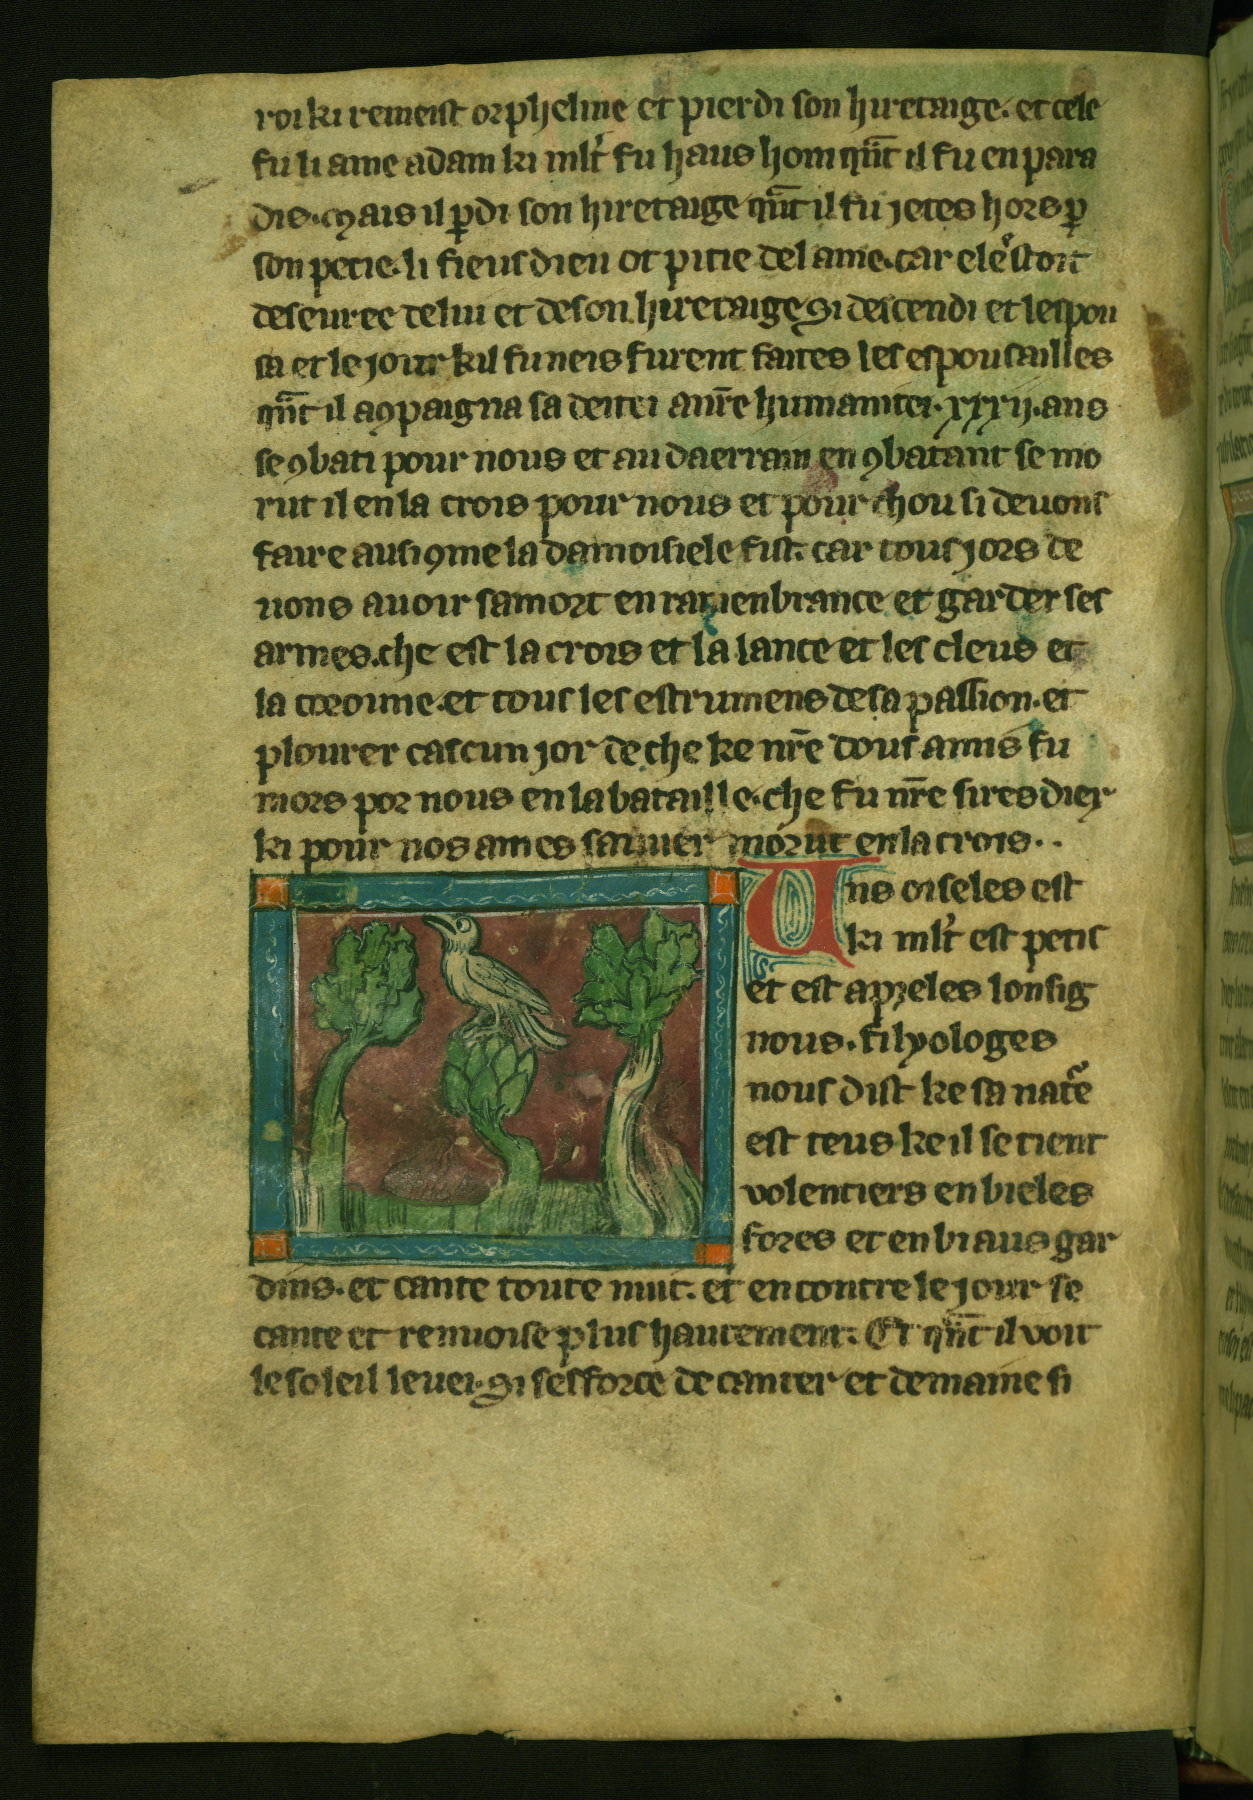 roi ki remeist orpheline et pierdi son hiretaige. et cele
fu li ame adam ki mlt̉ fu haus hom qn̄t il fu en para
dis. Mais il ꝑdi son hiretaige qn̄t il fu jetes hors ꝑ
son pecie. li fieus dieu ot pitie del ame. car ele estoit
deseuree de lui et de son hiretaige Si descendi et lespou
sa et le jour kil fu neis furent faites les espousailles
qn̄t il aꝯpaigna sa deitei a nr̄e humanitei. xxxij. ans
se ꝯbati pour nous et au daerrain en ꝯbatant se mo
rut il en la crois pour nous et pour chou si deuons
faire ausi ꝯme la damoisiele fist. car tous jors de
uons auoir sa mort en ramenbrance et garder ses
armes. che est la crois et la lance et les cleus et
la coronne. et tous les estrumens de sa passion. et
plourer cascun jor de che ke nr̄e dous amis fu
mors por nous en la bataille. che fu nr̄e sires diex
ki pour nos ames sauuer morut en la crois..
Uns oiseles est
ki mlt̉ est petis
et est apieles lonsig
nous. filyologes
nous dist ke sa nat̉e
est teus ke il se tient
volentiers en bieles
fores et en biaus gar
dins. et cante toute nuit. et encontre le jour se
cante et renuoise plus hautement. Et qn̄t il voit
le soleil leuei. Si sesforce de canter et demaine si